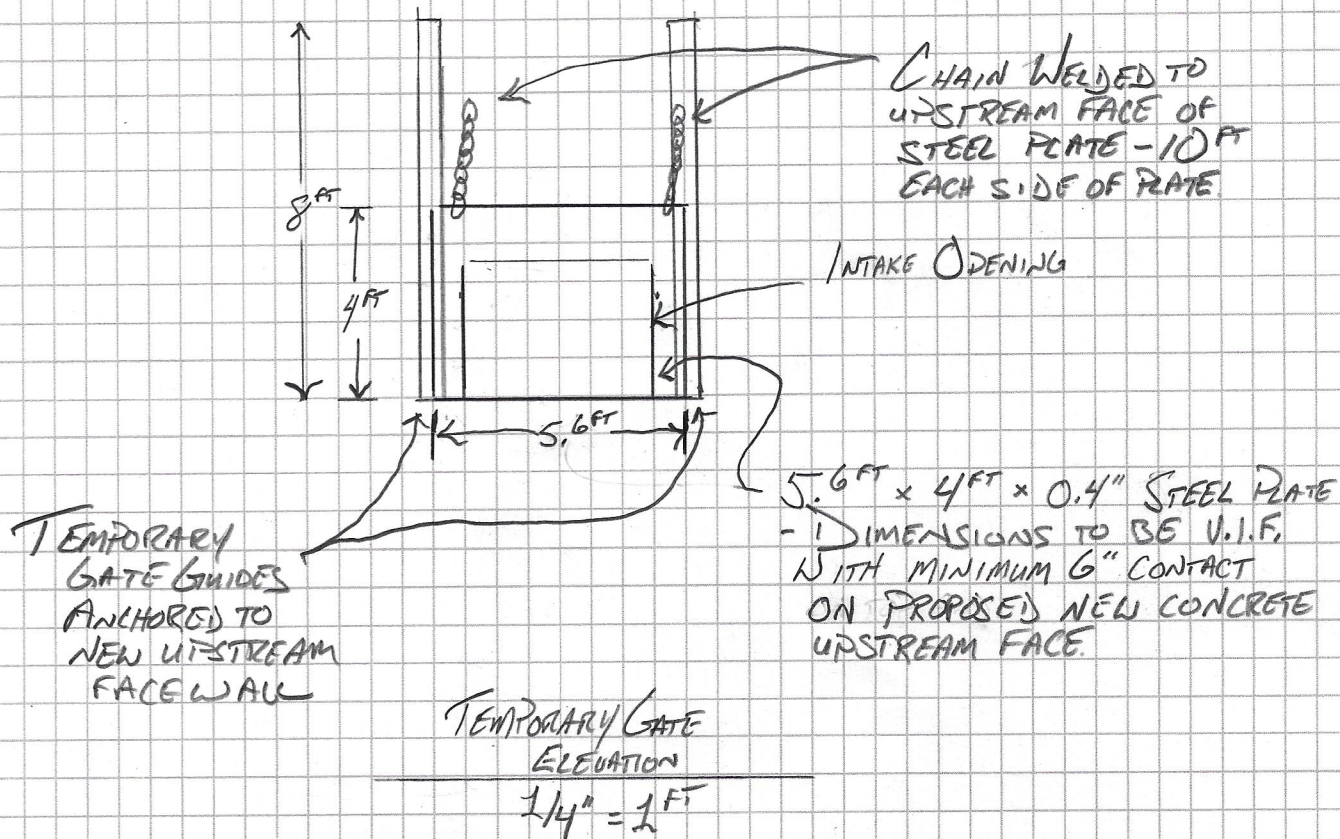 CHAIN WELDED TO
UPSTREAM FACE OF
STEEL PLATE - 10 FT
EACH SIDE OF PLATE
8 FT
4 FT
INTAKE OPENING
5.6 FT
5.6 FT x 4 FT x 0.4" STEEL PLATE
- DIMENSIONS TO BE V.I.F.
WITH MINIMUM 6" CONTACT
ON PROPOSED NEW CONCRETE
UPSTREAM FACE.
TEMPORARY
GATE GUIDES
ANCHORED TO
NEW UPSTREAM
FACE WALL
TEMPORARY GATE
ELEVATION
1/4" = 1 FT